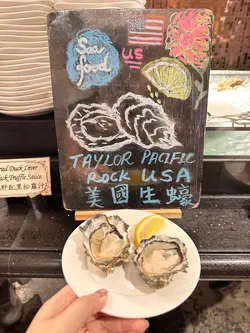 Sea
food
us
TAYLOR PACIFIC
ROCK USA
美國生蠔
Duck Liver
Truffle Sauce